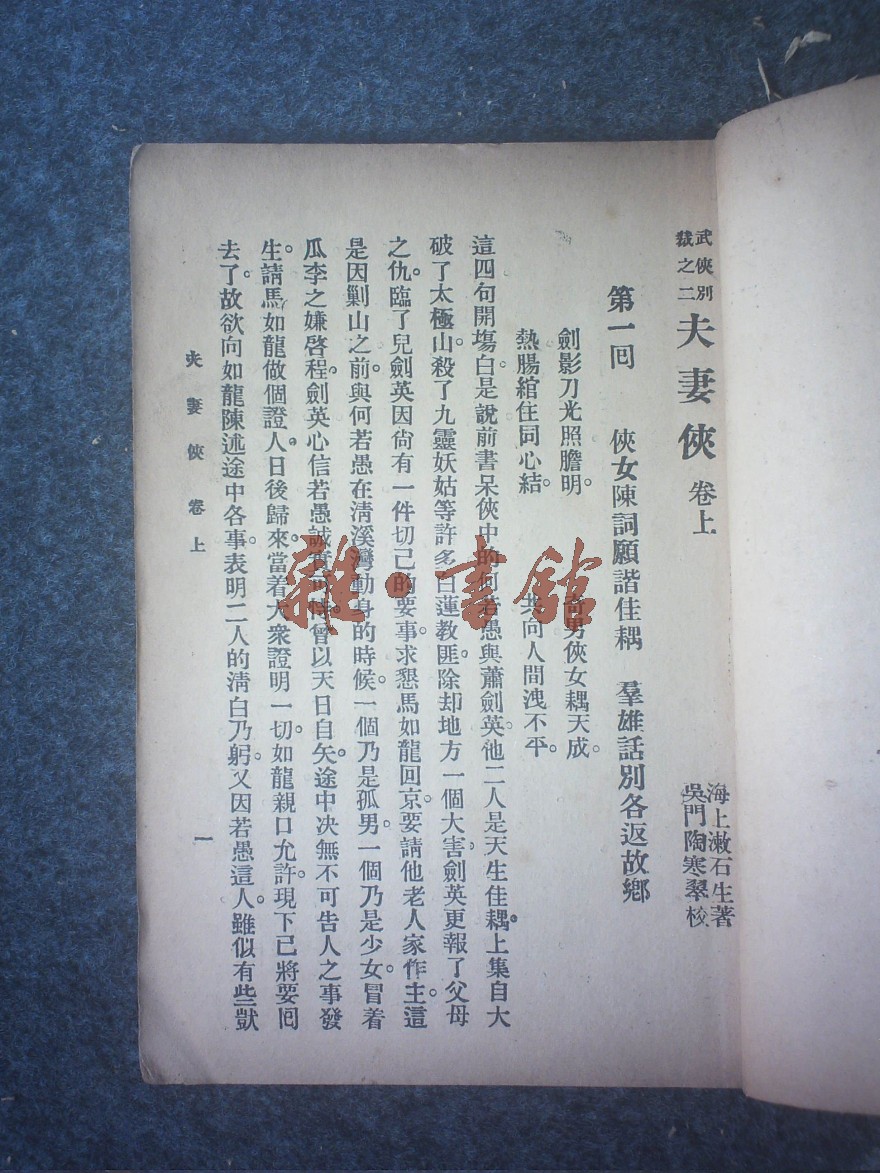 武俠別
裁之二
夫妻俠 卷上
海上漱石生著
吳門陶寒翠校
第一回 俠女陳詞願諧佳耦 羣雄話別各返故鄉
劍影刀光照膽明。奇男俠女耦天成。
熱腸綰住同心結。共向人間洩不平。
這四句開塲白。是說前書呆俠中的何若愚與蕭劍英。他二人是天生佳耦。上集自大
破了太極山。殺了九靈妖姑等許多白蓮教匪。除却地方一個大害。劍英更報了父母
之仇。臨了兒劍英因尙有一件切己的要事。求懇馬如龍回京。要請他老人家作主。這
是因剿山之前。與何若愚在淸溪灣動身的時候。一個乃是孤男。一個乃是少女。冒着
瓜李之嫌啓程。劍英心信若愚誠實可恃。曾以天日自矢。途中决無不可告人之事發
生。請馬如龍做個證人。日後歸來。當着大衆證明一切。如龍親口允許。現下已將要囘
去了。故欲向如龍陳述途中各事。表明二人的淸白乃躬。又因若愚這人。雖似有些獃
夫妻俠 卷上
一
雜·書館